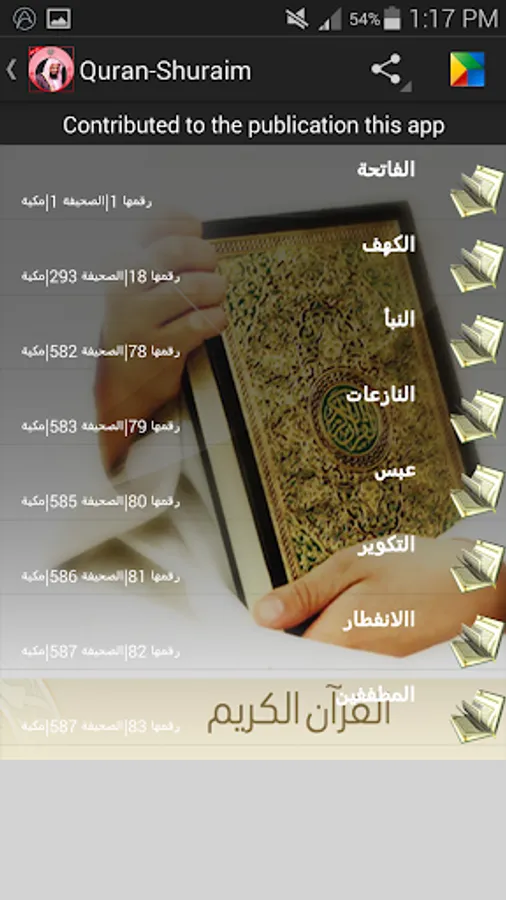 54% 1:17 PM
Quran-Shuraim
Contributed to the publication this app
الفاتحة
رقمها 1|الصحيفة 1|مكية
الكهف
رقمها 18|الصحيفة 293|مكية
النبأ
رقمها 78|الصحيفة 582|مكية
النازعات
رقمها 79|الصحيفة 583|مكية
عبس
رقمها 80|الصحيفة 585|مكية
التكوير
رقمها 81|الصحيفة 586|مكية
االانفطار
رقمها 82|الصحيفة 587|مكية
المطففين
رقمها 83|الصحيفة 587|مكية
القرآن الكريم